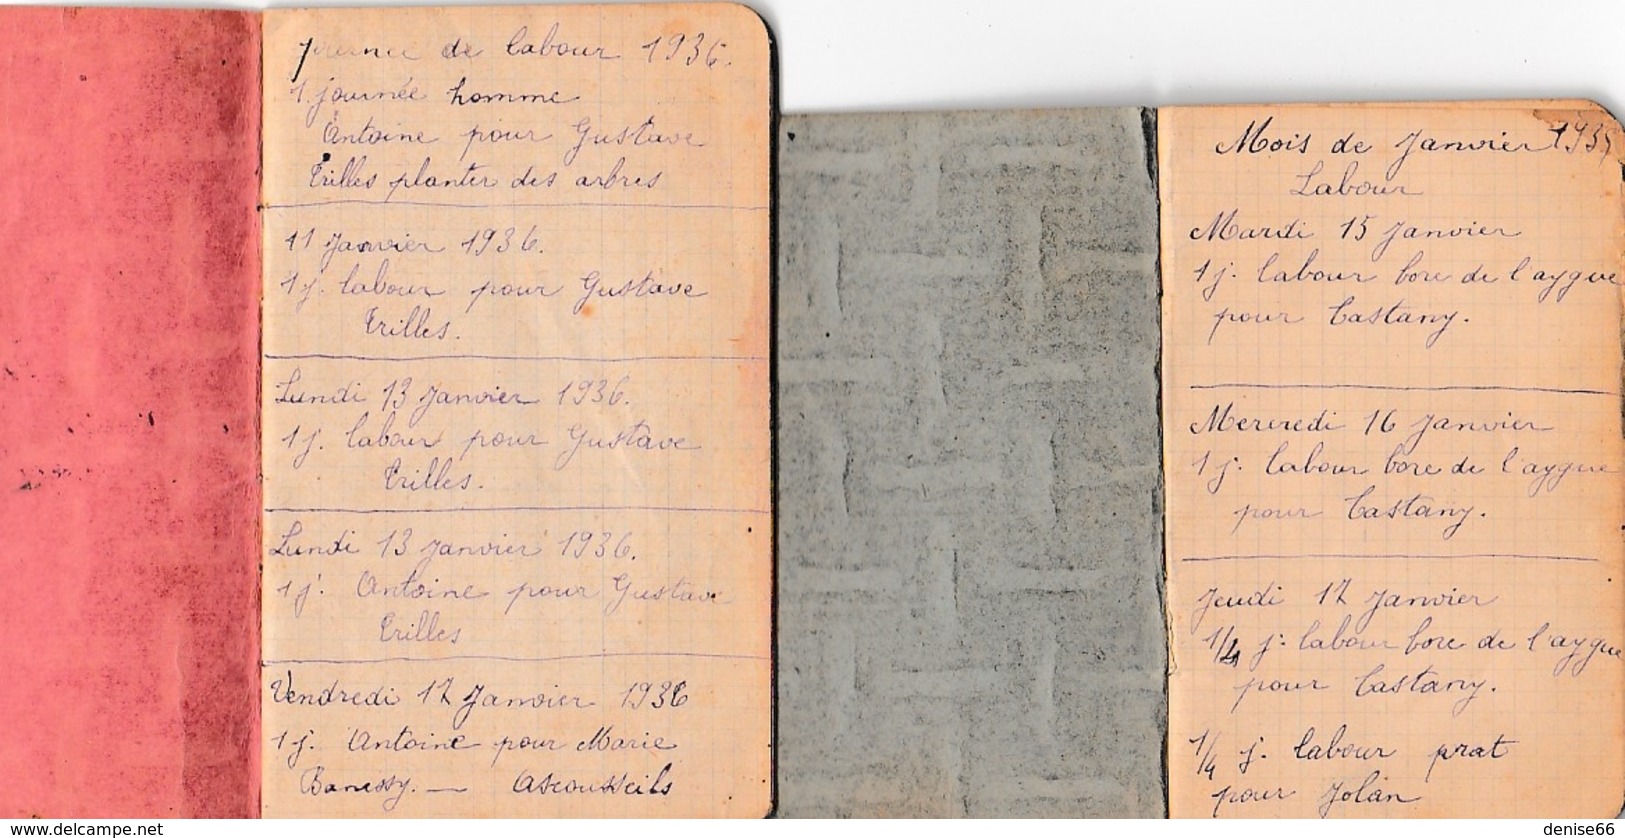 journée de labour 1936.
1 journée homme
Antoine pour Gustave
Trilles planter des arbres
11 Janvier 1936.
1 j. labour pour Gustave
Trilles.
Lundi 13 Janvier 1936.
1 j. labour pour Gustave
Trilles.
Lundi 13 Janvier 1936.
1 j. Antoine pour Gustave
Trilles
Vendredi 17 Janvier 1936
1 j. Antoine pour Marie
Banessy. — Ascousseils
Mois de Janvier 1935
Labour
Mardi 15 Janvier
1 j. labour bore de l'aygue
pour Castany.
Mercredi 16 Janvier
1 j. labour bore de l'aygue
pour Castany.
Jeudi 17 Janvier
1/4 j. labour bore de l'aygue
pour Castany.
1/4 j. labour prat
pour Jolan
www.delcampe.net
denise66